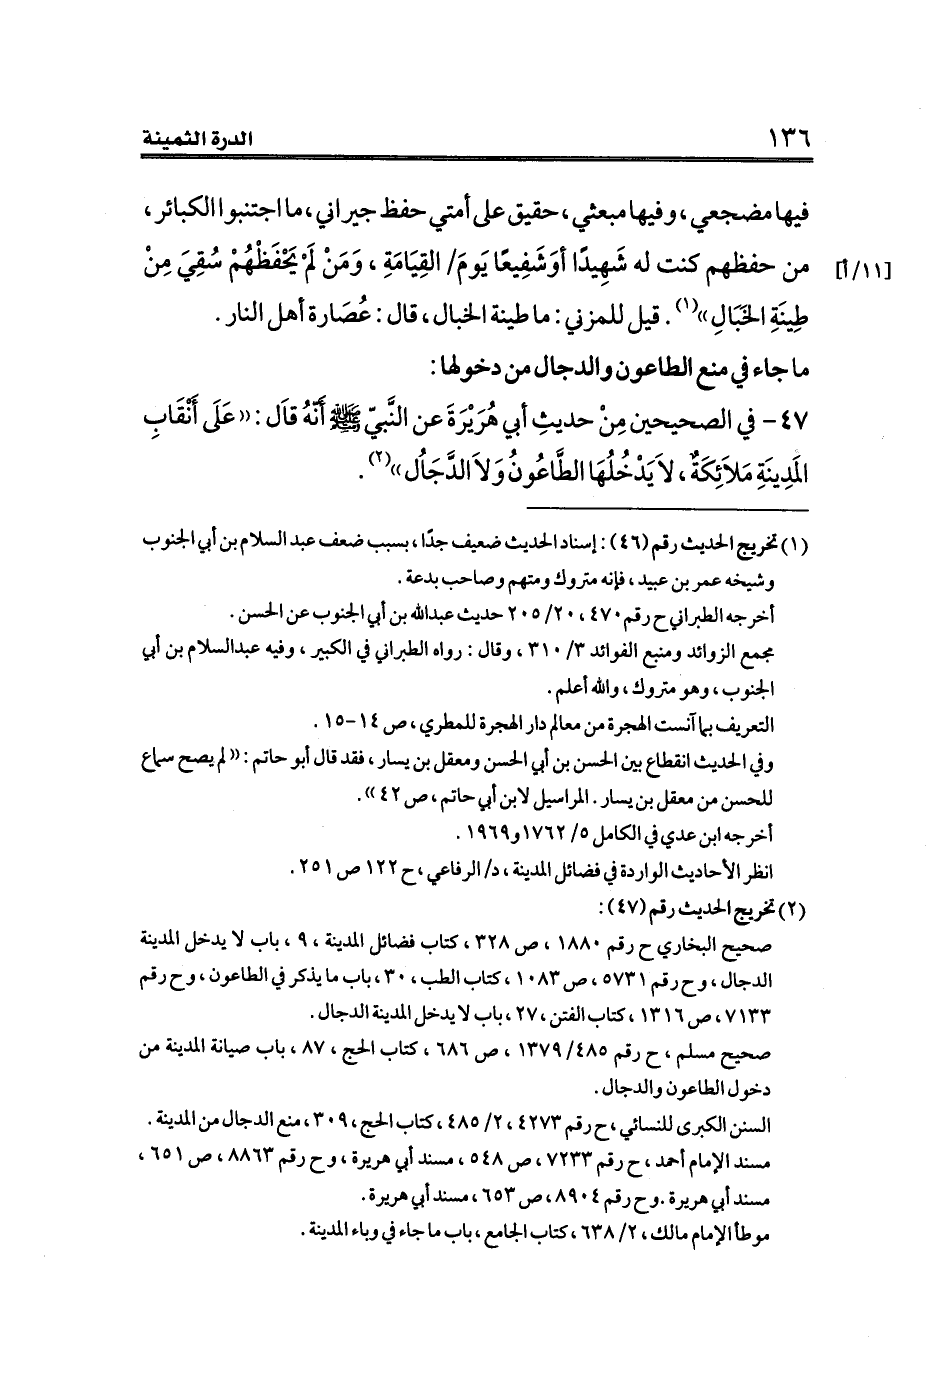 ١٣٦ الدرة الثمينة
فيها مضجعي، وفيها مبعثي، حقيق على أمتي حفظ جيراني، ما اجتنبوا الكبائر،
من حفظهم كنت له شَهِيدًا أوَشَفِيعًا يَومَ/ القِيَامَةِ، وَمَنْ لَمْ يَحْفَظْهُمْ سُقِيَ مِنْ [١١/أ]
طِينَةِ الخَبَالِ»(١). قيل للمزني: ما طينة الخبال، قال: عُصَارة أهل النار.
ما جاء في منع الطاعون والدجال من دخولها:
٤٧- في الصحيحين مِنْ حديثِ أبي هُرَيْرَةَ عن النَّبيّ ﷺ أَنَّهُ قاَل: «عَلَى أَنْقَابِ
المَدِينَةِ مَلاَئِكَةٌ، لاَ يَدْخُلُهَا الطَّاعُونُ وَلاَ الدَّجَالُ»(٢).
(١) تخريج الحديث رقم (٤٦): إسناد الحديث ضعيف جدًا، بسبب ضعف عبد السلام بن أبي الجنوب
وشيخه عمر بن عبيد، فإنه متروك ومتهم وصاحب بدعة.
أخرجه الطبراني ح رقم ٤٧٠، ٢٠/ ٢٠٥ حديث عبدالله بن أبي الجنوب عن الحسن.
مجمع الزوائد ومنبع الفوائد ٣/ ٣١٠، وقال: رواه الطبراني في الكبير، وفيه عبدالسلام بن أبي
الجنوب، وهو متروك، والله أعلم.
التعريف بما آنست الهجرة من معالم دار الهجرة للمطري، ص ١٤-١٥.
وفي الحديث انقطاع بين الحسن بن أبي الحسن ومعقل بن يسار، فقد قال أبو حاتم: «لم يصح سماع
للحسن من معقل بن يسار. المراسيل لابن أبي حاتم، ص ٤٢».
أخرجه ابن عدي في الكامل ٥/ ١٧٦٢ و١٩٦٩.
انظر الأحاديث الواردة في فضائل المدينة، د/ الرفاعي، ح ١٢٢ ص ٢٥١.
(٢) تخريج الحديث رقم (٤٧):
صحيح البخاري ح رقم ١٨٨٠، ص ٣٢٨، كتاب فضائل المدينة، ٩، باب لا يدخل المدينة
الدجال، وح رقم ٥٧٣١، ص ١٠٨٣، كتاب الطب، ٣٠، باب ما يذكر في الطاعون، وح رقم
٧١٣٣، ص ١٣١٦، كتاب الفتن، ٢٧، باب لا يدخل المدينة الدجال.
صحيح مسلم، ح رقم ٤٨٥/ ١٣٧٩، ص ٦٨٦، كتاب الحج، ٨٧، باب صيانة المدينة من
دخول الطاعون والدجال.
السنن الكبرى للنسائي، ح رقم ٤٢٧٣، ٢/ ٤٨٥، كتاب الحج، ٣٠٩، منع الدجال من المدينة.
مسند الإمام أحمد، ح رقم ٧٢٣٣، ص ٥٤٨، مسند أبي هريرة، وح رقم ٨٨٦٣، ص ٦٥١،
مسند أبي هريرة. وح رقم ٨٩٠٤، ص ٦٥٣، مسند أبي هريرة.
موطأ الإمام مالك، ٢/ ٦٣٨، كتاب الجامع، باب ما جاء في وباء المدينة.